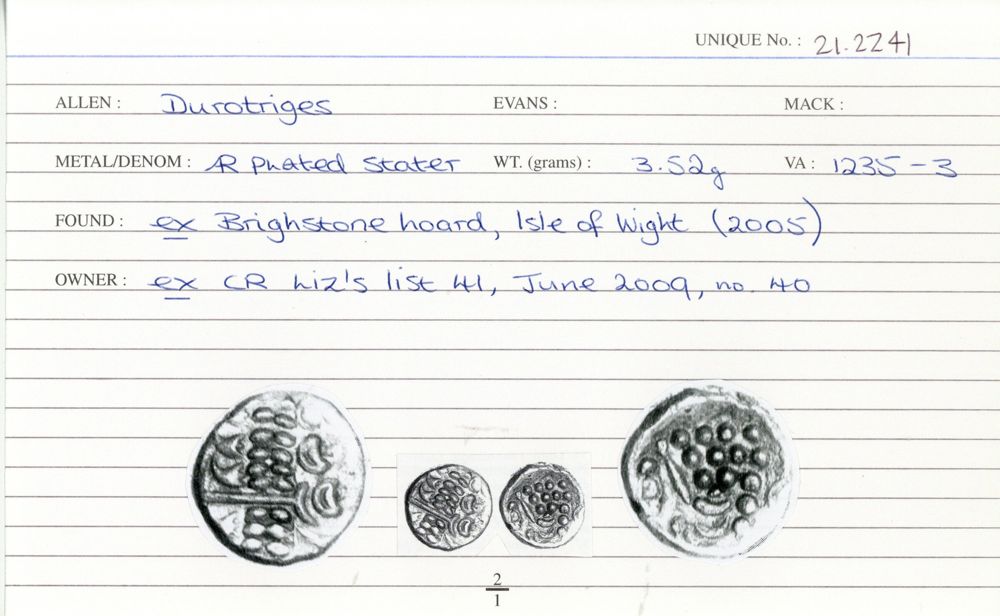 UNIQUE No. : 21.2241
ALLEN : Durotriges EVANS : MACK :
METAL/DENOM : AR Plated Stater WT. (grams) : 3.52g VA : 1235-3
FOUND : ex Brighstone hoard, Isle of Wight (2005)
OWNER : ex CR Liz's list 41, June 2009, no. 40
2
1